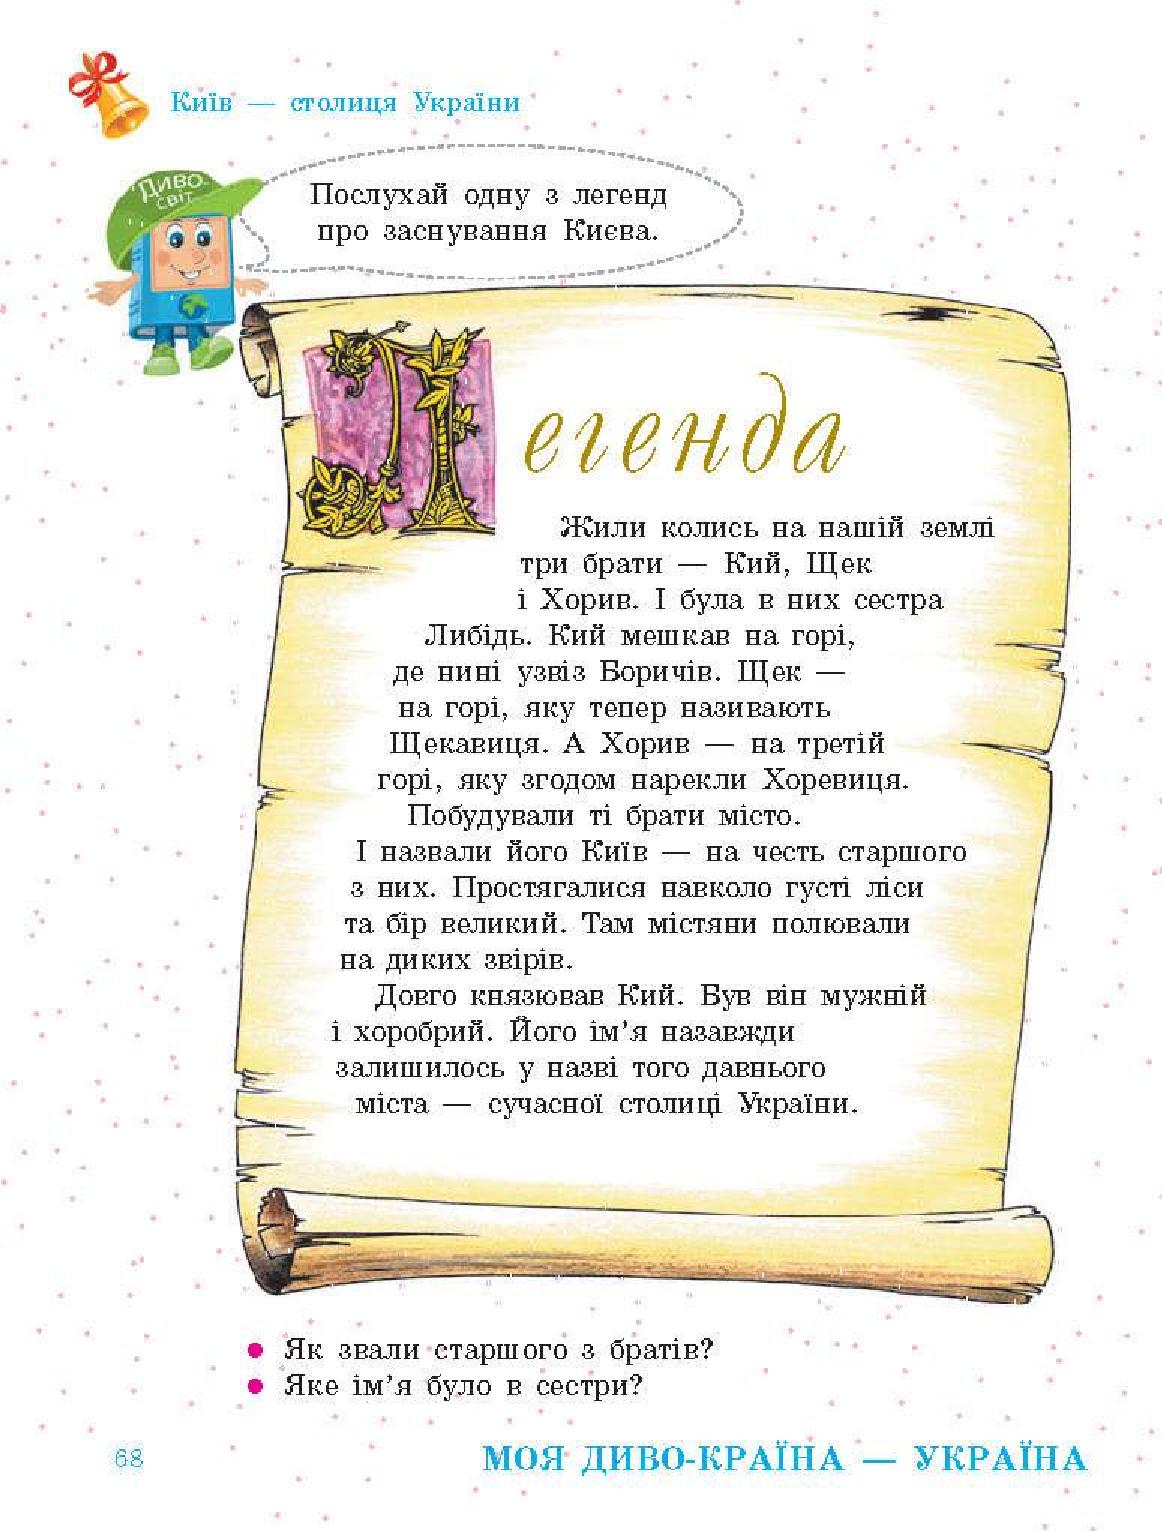 Київ — столиця України
ДИВО-
СВІТ
Послухай одну з легенд
про заснування Києва.
Легенда
Жили колись на нашій землі
три брати — Кий, Щек
і Хорив. І була в них сестра
Либідь. Кий мешкав на горі,
де нині узвіз Боричів. Щек —
на горі, яку тепер називають
Щекавиця. А Хорив — на третій
горі, яку згодом нарекли Хоревиця.
Побудували ті брати місто.
І назвали його Київ — на честь старшого
з них. Простягалися навколо густі ліси
та бір великий. Там містяни полювали
на диких звірів.
Довго князював Кий. Був він мужній
і хоробрий. Його ім’я назавжди
залишилось у назві того давнього
міста — сучасної столиці України.
Як звали старшого з братів?
Яке ім’я було в сестри?
68
МОЯ ДИВО-КРАЇНА — УКРАЇНА